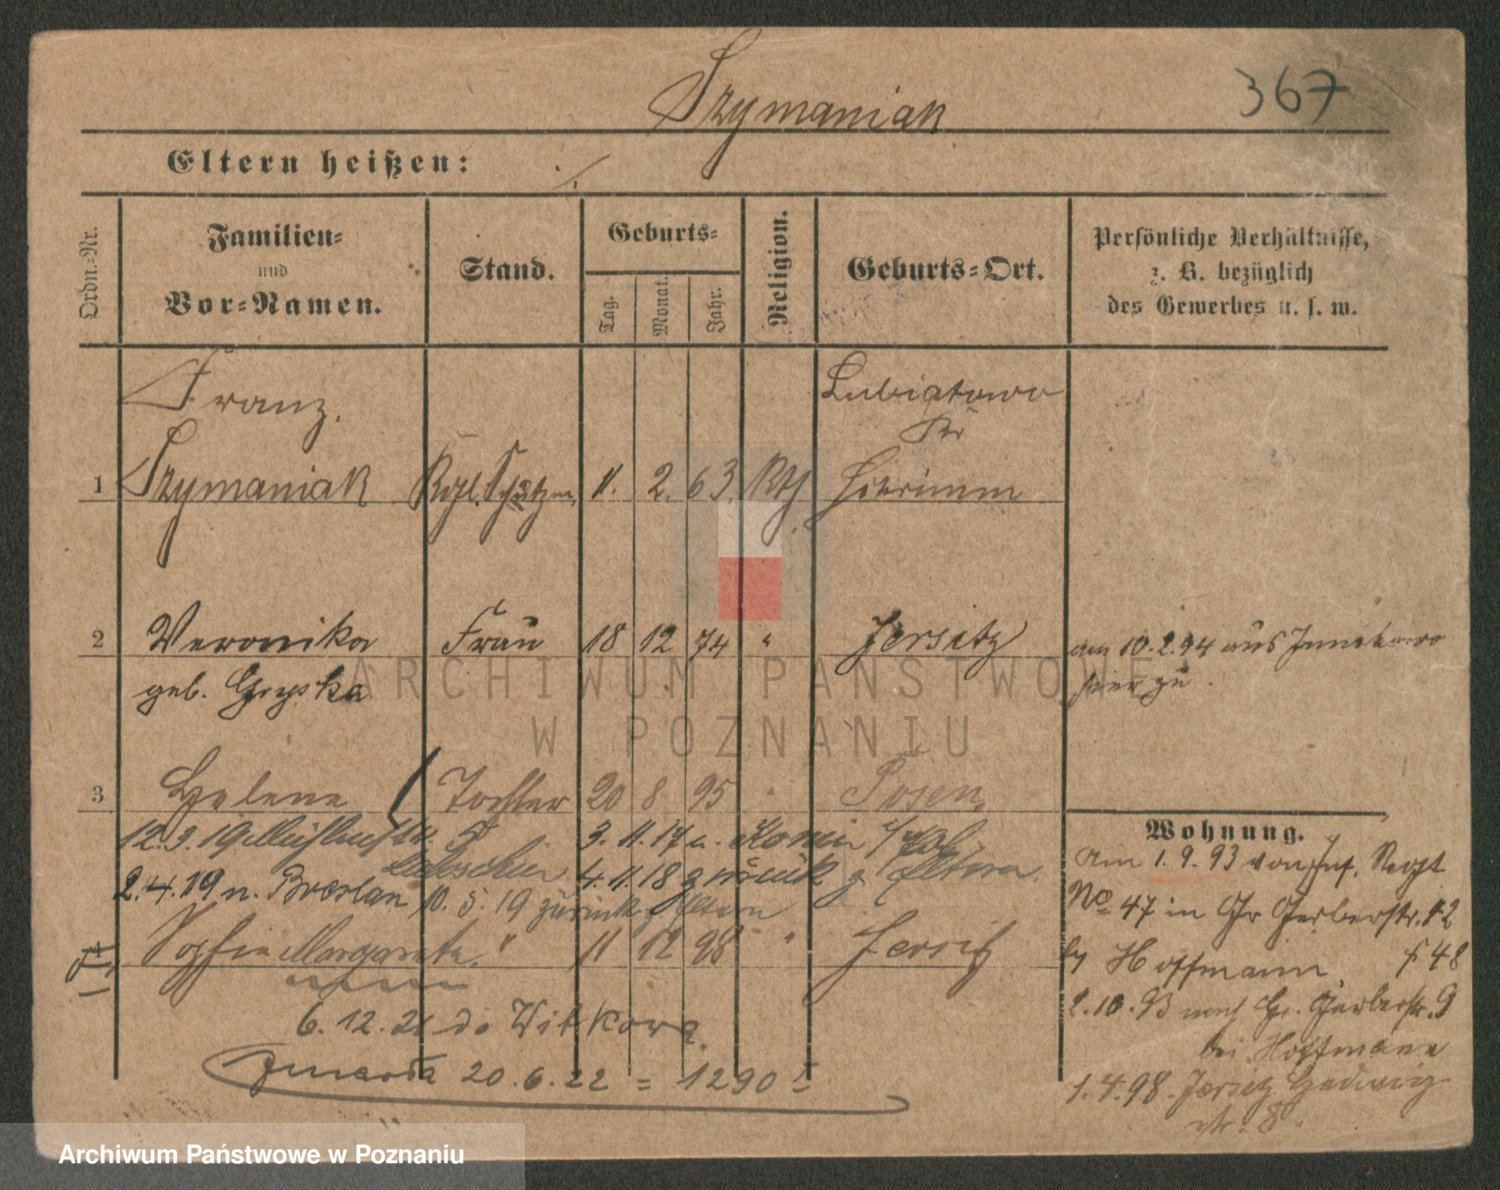 Szymaniak
367
Eltern heißen:
Ordn.-Nr.
Familien-
und
Vor-Namen.
Stand.
Geburts-
Tag.
Monat.
Jahr.
Religion.
Geburts-Ort.
Persönliche Verhältnisse,
z. B. bezüglich
des Gewerbes u. s. w.
Franz
Lubiatowo
Kr
1 Szymaniak Kgl. Schutzm. 11. 2. 63. Kth
2 Veronika Frau 18 12 74 " Jersitz
geb. Gryska
am 10.2.94 aus
hier zu.
3 Helene Tochter 20 8 95 " Posen.
12.3.19
3.11.17
2.4.19 n. Breslau
4.11.18 zurück z. Eltern
10.5.19 zurück z. Eltern
4 Sophie Margarete " 11 12 98 " Jersitz
6.12.21 do Witkowa
zmarła 20.6.22 = 1290
Wohnung.
Am 1.9.93 von Inf. Regt
No 47 in Gr Gerberstr. 42
by Hoffmann
2.10.93 nach Gr. Gerberstr. 9
bei Hoffmann
1.4.98. Jersitz Hedwig
str. 8.
ARCHIWUM PAŃSTWOWE
W POZNANIU
Archiwum Państwowe w Poznaniu